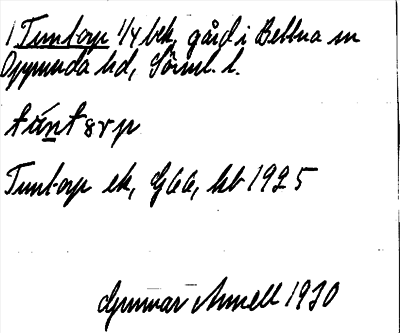 1 Tuntorp 1/4 bek. gård i Bettna sn
Oppunda hd, Sörml. l.
tǘntsrp
Tuntorp ek, GEA, bl. 1925
Gunnar Annell 1930